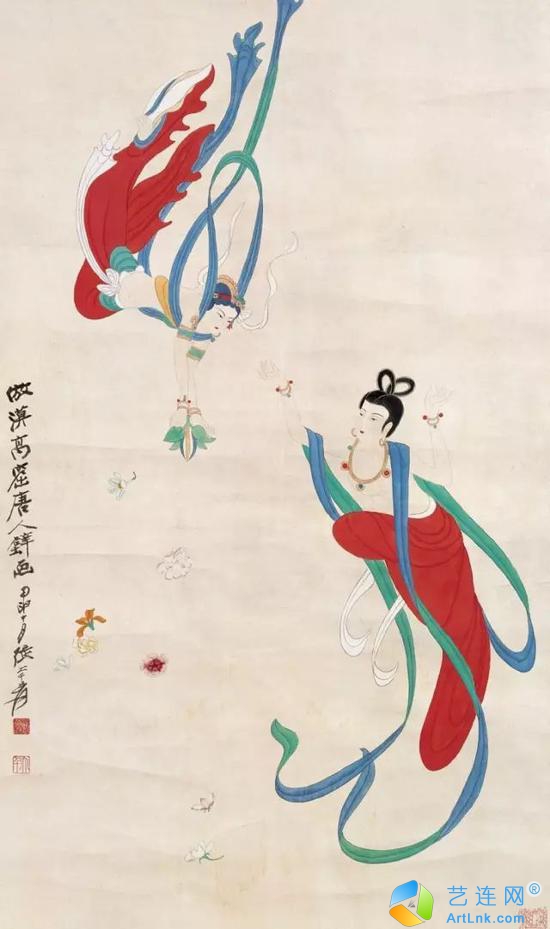 倣漠高窟唐人壁画 甲申十月 張大千爰
艺连网®
ArtLnk.com